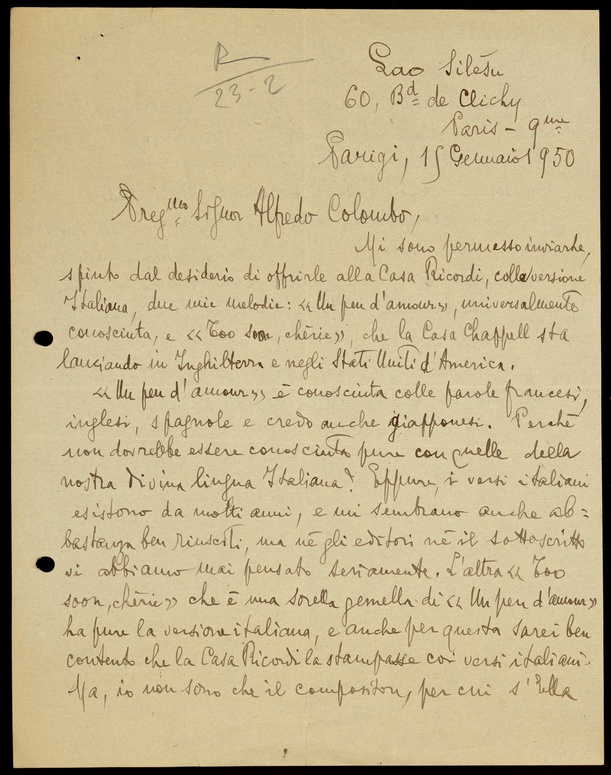 R
23-2
Lao Silésu
60, Bd de Clichy
Paris - 9me
Parigi, 15 Gennaio 1950
Preg.mo Signor Alfredo Colombo,
Mi sono permesso inviarle,
spinto dal desiderio di offrirle alla Casa Ricordi, colla versione
Italiana, due mie melodie: « Un peu d'amour », universalmente
conosciuta, e « Too soon, chèrie », che la Casa Chappell sta
lanziando in Inghilterra e negli Stati Uniti d'America.
« Un peu d'amour » è conosciuta colle parole francesi,
inglesi, spagnole e credo anche giapponesi. Perchè
non dovrebbe essere conosciuta pure con quelle della
nostra divina lingua Italiana? Eppure, i versi italiani
esistono da molti anni, e mi sembrano anche ab=
bastanza ben riusciti, ma nè gli editori nè il sottoscritto
vi abbiamo mai pensato seriamente. L'altra « Too
soon, chèrie » che è una sorella gemella di « Un peu d'amour »
ha pure la versione italiana, e anche per questa sarei ben
contento che la Casa Ricordi la stampasse coi versi italiani.
Ma, io non sono che il compositore, per cui s'Ella